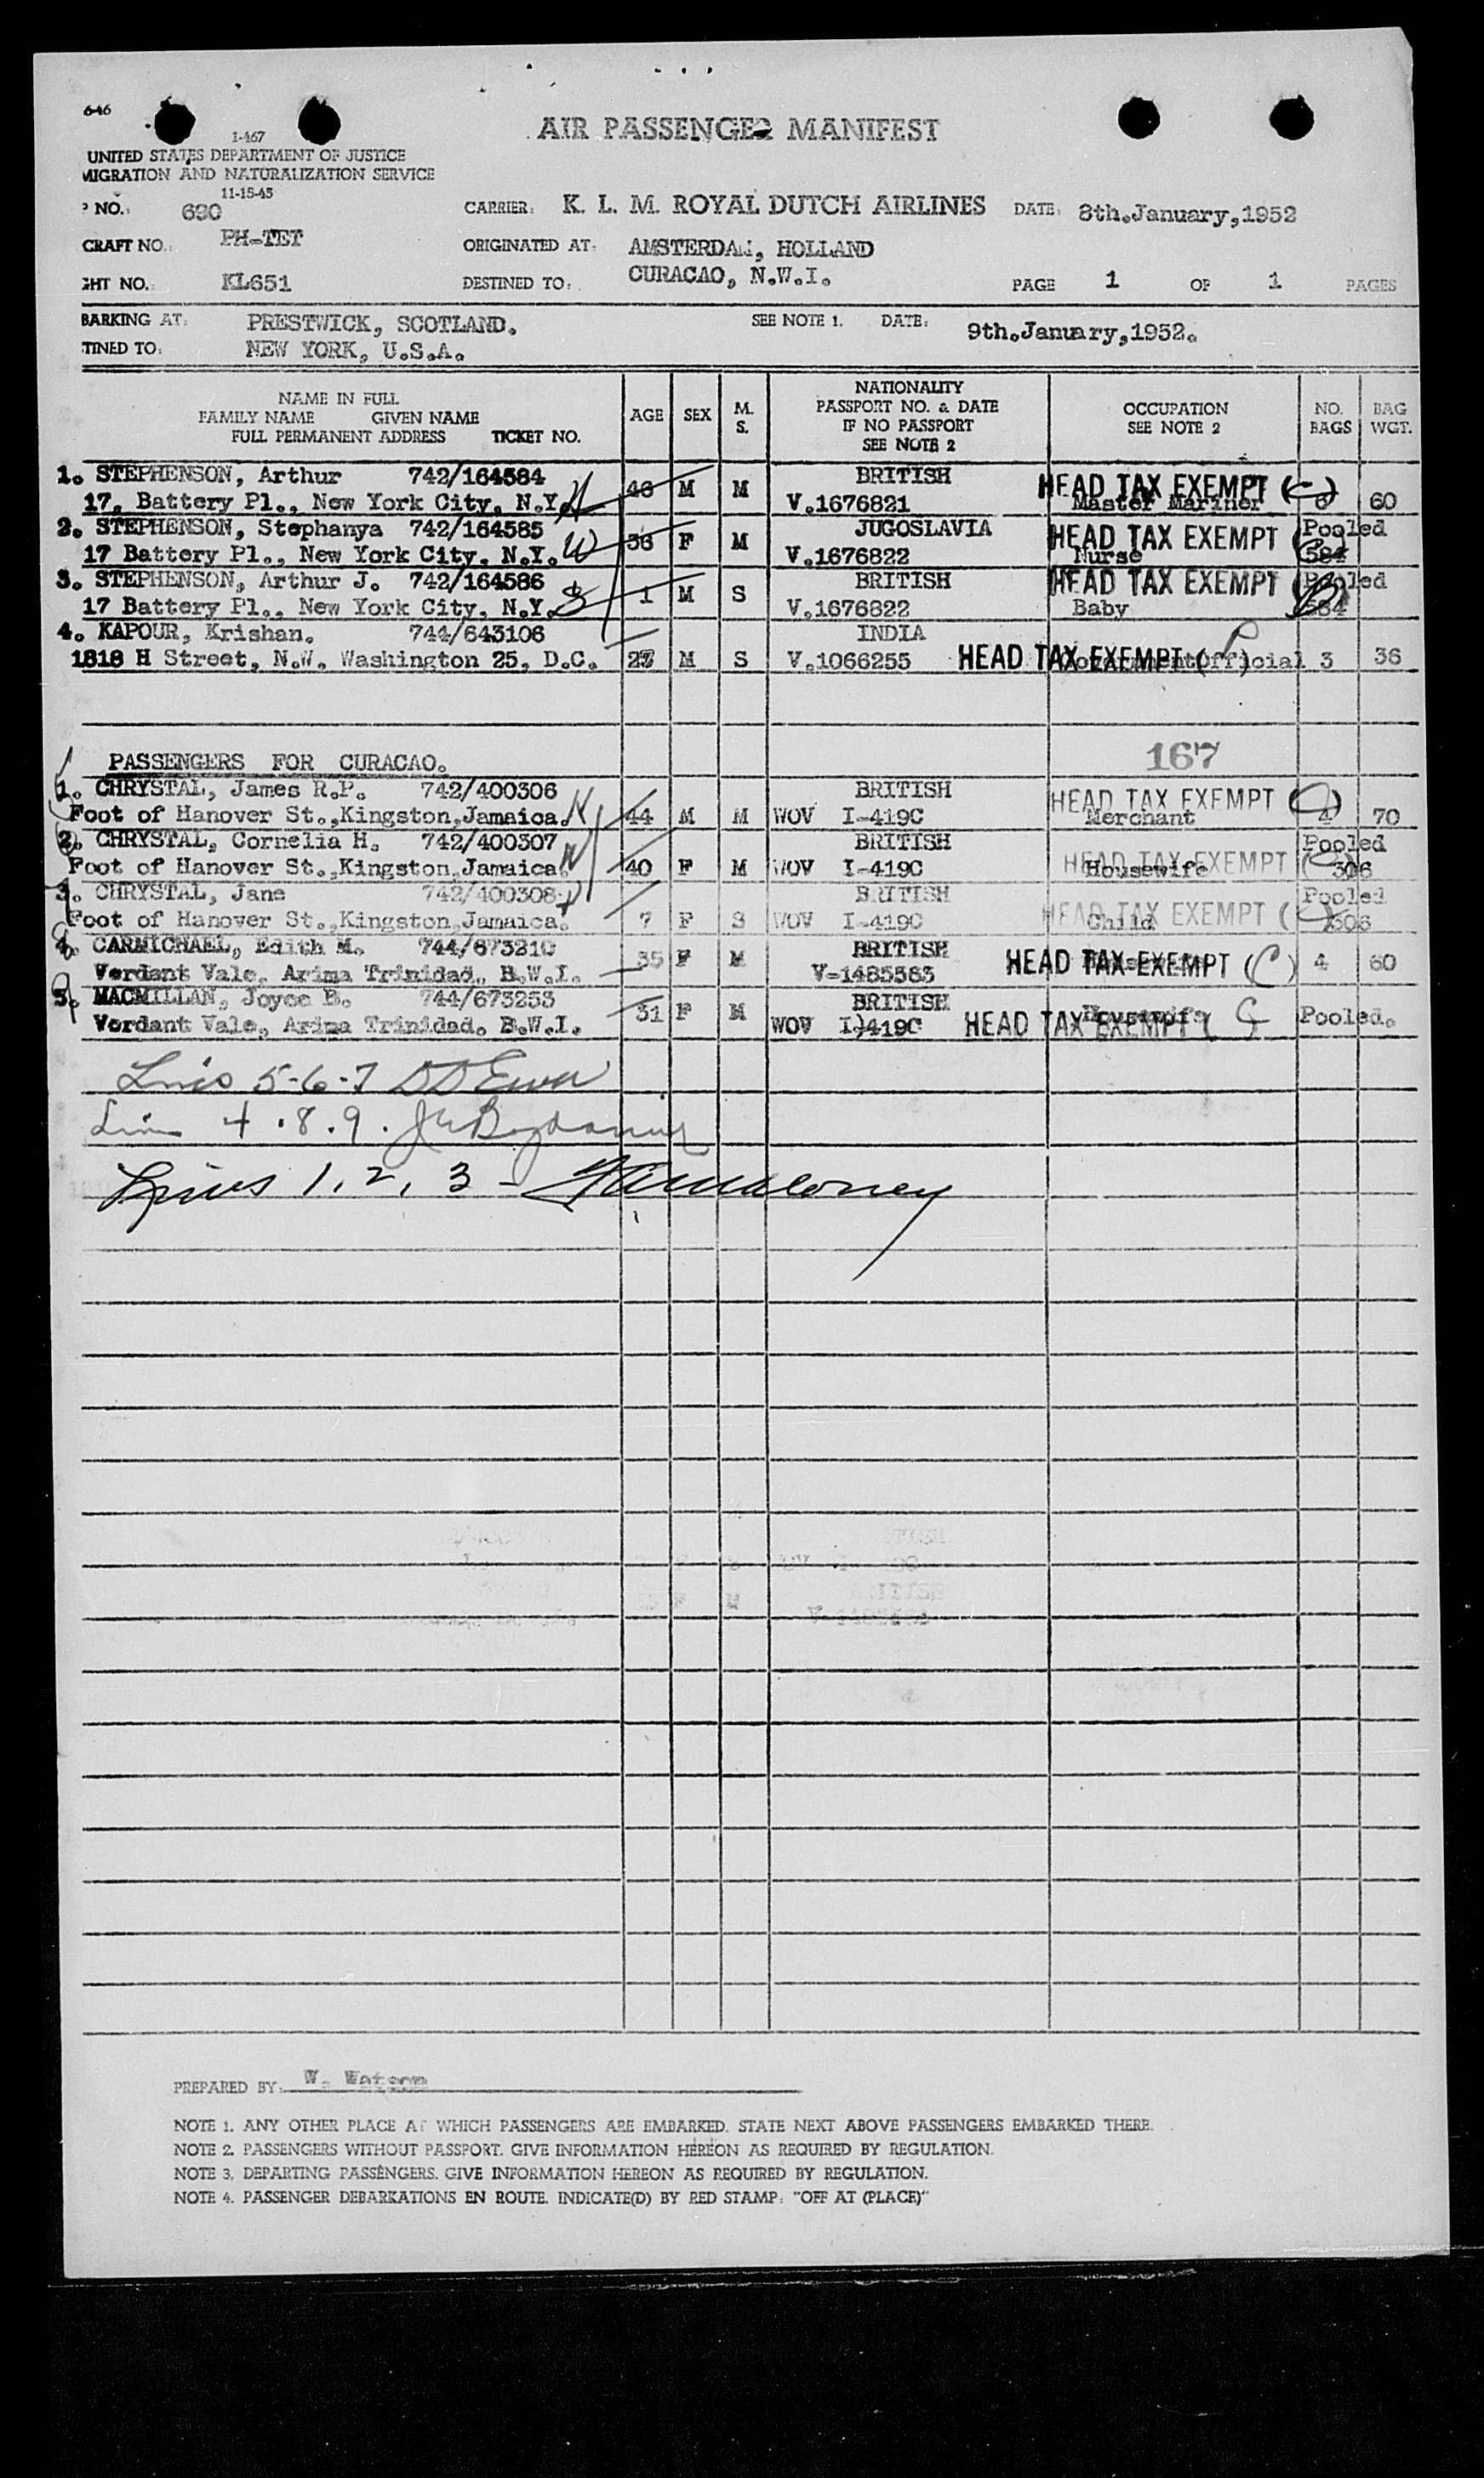 6-46
1-467
AIR PASSENGER MANIFEST
UNITED STATES DEPARTMENT OF JUSTICE
MIGRATION AND NATURALIZATION SERVICE
11-15-45
P NO.: 680 CARRIER: K. L. M. ROYAL DUTCH AIRLINES DATE: 8th.January,1952
CRAFT NO.: PH-TET ORIGINATED AT: AMSTERDAM, HOLLAND
GHT NO.: KL651 DESTINED TO: CURACAO, N.W.I. PAGE 1 OF 1 PAGES
BARKING AT: PRESTWICK, SCOTLAND. SEE NOTE 1. DATE: 9th.January,1952.
TINED TO: NEW YORK, U.S.A.
NAME IN FULL
FAMILY NAME GIVEN NAME
FULL PERMANENT ADDRESS TICKET NO.
AGE SEX M. S.
NATIONALITY
PASSPORT NO. & DATE
IF NO PASSPORT
SEE NOTE 2
OCCUPATION
SEE NOTE 2
NO. BAGS
BAG WGT.
1. STEPHENSON, Arthur 742/164584 BRITISH HEAD TAX EXEMPT (C)
17, Battery Pl., New York City, N.Y. 46 M M V.1676821 Master Mariner 6 60
2. STEPHENSON, Stephanya 742/164585 JUGOSLAVIA HEAD TAX EXEMPT ( Pooled
17 Battery Pl., New York City, N.Y. W 36 F M V.1676822 Nurse 584
3. STEPHENSON, Arthur J. 742/164586 BRITISH HEAD TAX EXEMPT ( Pooled
17 Battery Pl., New York City, N.Y. S 1 M S V.1676822 Baby 584
4. KAPOUR, Krishan. 744/643106 INDIA
1818 H Street, N.W. Washington 25, D.C. M S V.1066255 HEAD TAX EXEMPT ( ) Government Official 3 36
167
PASSENGERS FOR CURACAO.
1. CHRYSTAL, James R.P. 742/400306 BRITISH HEAD TAX EXEMPT (C)
Foot of Hanover St.,Kingston,Jamaica. 44 M M WOV I-419C Merchant 4 70
2. CHRYSTAL, Cornelia H. 742/400307 BRITISH Pooled
Foot of Hanover St.,Kingston,Jamaica. 40 F M WOV I-419C HEAD TAX EXEMPT (C) Housewife 306
3. CHRYSTAL, Jane 742/400308 BRITISH Pooled
Foot of Hanover St.,Kingston,Jamaica. 7 F S WOV I-419C HEAD TAX EXEMPT (C) Child 306
4. CARMICHAEL, Edith M. 744/673210 BRITISH
Verdant Vale, Arima Trinidad, B.W.I. 35 F M V-1485583 HEAD TAX EXEMPT (C) 4 60
5. MACMILLAN, Joyce B. 744/673253 BRITISH
Verdant Vale, Arima Trinidad. B.W.I. 31 F M WOV I)419C HEAD TAX EXEMPT ( C Housewife Pooled.
5-6-7
4 . 8 . 9 .
Lines 1, 2, 3 -
PREPARED BY: W. Watson
NOTE 1. ANY OTHER PLACE AT WHICH PASSENGERS ARE EMBARKED. STATE NEXT ABOVE PASSENGERS EMBARKED THERE.
NOTE 2. PASSENGERS WITHOUT PASSPORT. GIVE INFORMATION HEREON AS REQUIRED BY REGULATION.
NOTE 3. DEPARTING PASSENGERS. GIVE INFORMATION HEREON AS REQUIRED BY REGULATION.
NOTE 4. PASSENGER DEBARKATIONS EN ROUTE. INDICATE(D) BY RED STAMP: "OFF AT (PLACE)"